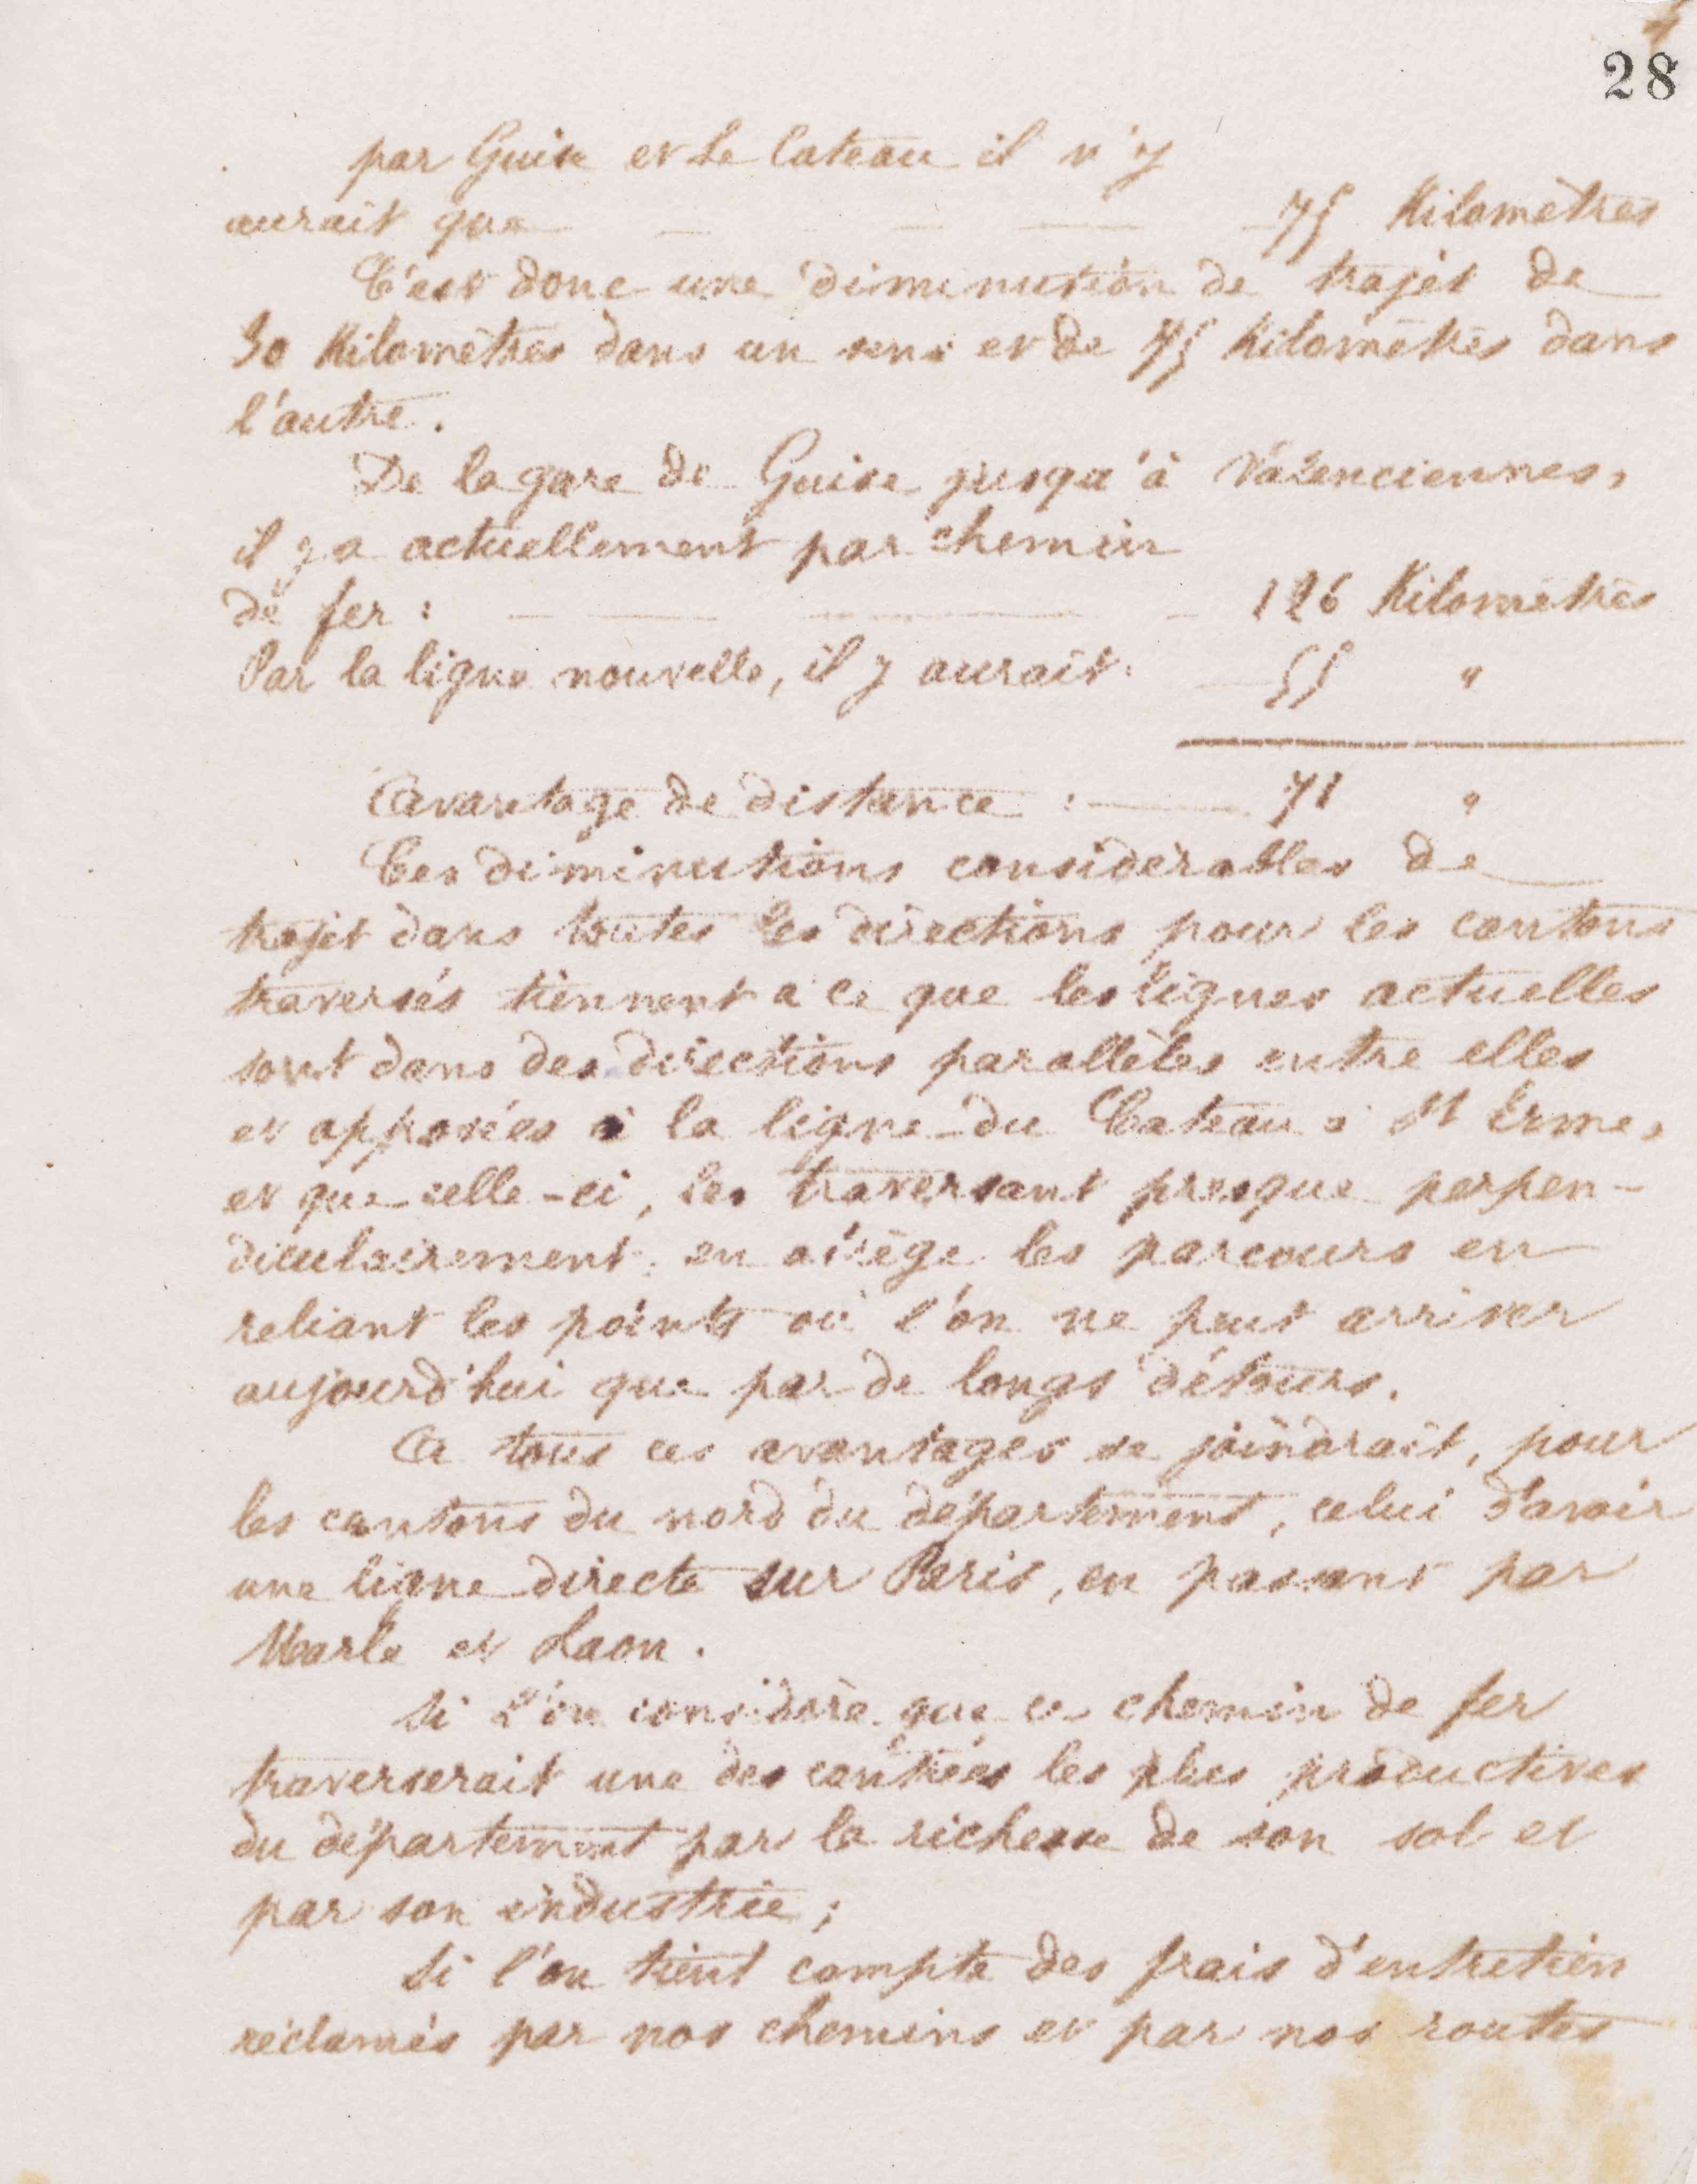 28
par Guise et Le Cateau il n'y
aurait que — — — — 75 Kilomètres
C'est donc une diminution de trajet de
30 Kilomètres dans un sens et de 75 Kilomètres dans
l'autre.
De la gare de Guise jusqu'à Valenciennes,
il y a actuellement par chemin
de fer : — — — — 126 Kilomètres
Par la ligne nouvelle, il y aurait : — 55 "
Avantage de distance : — 71 "
Ces diminutions considérables de
trajet dans toutes les directions pour les cantons
traversés tiennent a ce que les lignes actuelles
sont dans des directions parallèles entre elles
et opposées à la ligne du Cateau à St Erme,
et que celle-ci, les traversant presque perpen-
diculairement, en abrège les parcours en
reliant les points où l'on ne peut arriver
aujourd'hui que par de longs détours.
A tous ces avantages se joindrait, pour
les cantons du nord du département, celui d'avoir
une ligne directe sur Paris, en passant par
Marle et Laon.
Si l'on considère que ce chemin de fer
traverserait une des contrées les plus productives
du département par la richesse de son sol et
par son industrie ;
Si l'on tient compte des frais d'entretien
réclamés par nos chemins et par nos routes